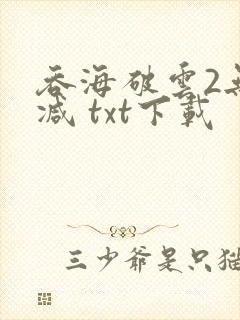 吞海破雲2無
減 txt下載
三少爺是只猫